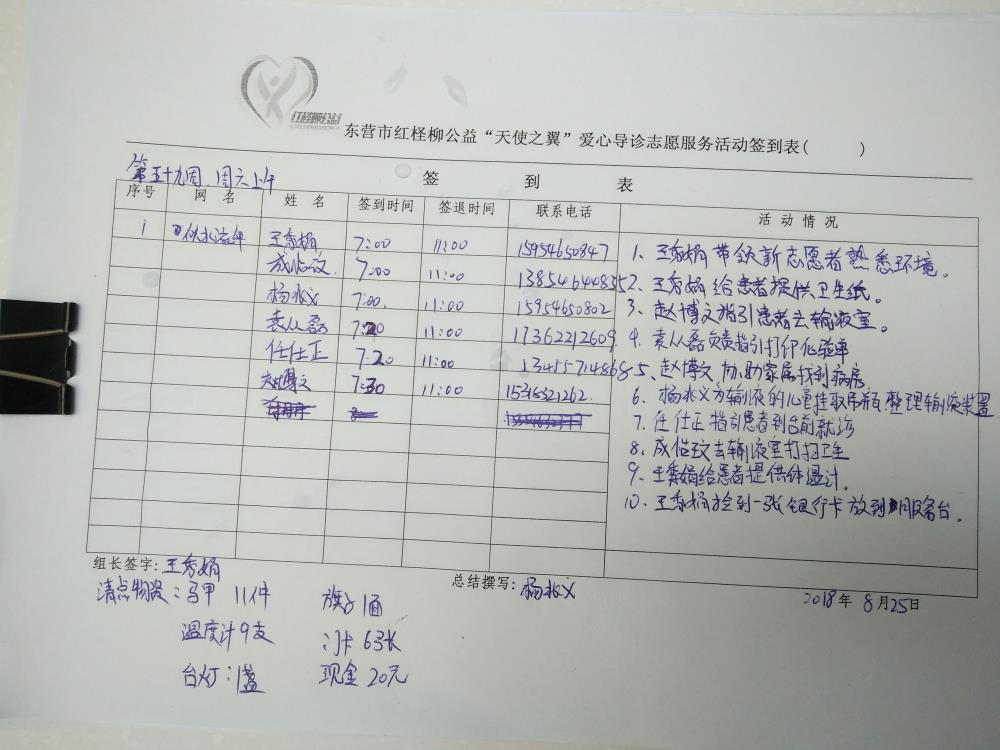 红柽柳公益
东营市红柽柳公益“天使之翼”爱心导诊志愿服务活动签到表( )
第五十九周 周六上午
签 到 表
序号 网 名 姓 名 签到时间 签退时间 联系电话 活 动 情 况
1 似水流年 王秀娟 7:00 11:00 15954650847
成临 7:00 11:00 13854644835
杨兆义 7:00 11:00 15954650802
袁从磊 7:20 11:00 17362212609
任仕正 7:20 11:00 13455714868
赵博文 7:30 11:00 15316321262
1、王秀娟带领新志愿者熟悉环境。
2、王秀娟给患者提供卫生纸。
3、赵博文指引患者去输液室。
4、袁从磊负责指引打印化验单
5、赵博文协助家属找到病房
6、杨兆义为输液的儿童挂取吊瓶整理输液装置
7、任仕正指引患者到台前就诊
8、成临去输液室打扫卫生
9、王秀娟给患者提供体温计。
10、王秀娟捡到一张银行卡放到服务台。
组长签字:王秀娟
总结撰写:杨兆义
2018年 8月25日
清点物资:马甲 11件 旗子1面
温度计9支 门卡 63张
台灯:1盏 现金 20元